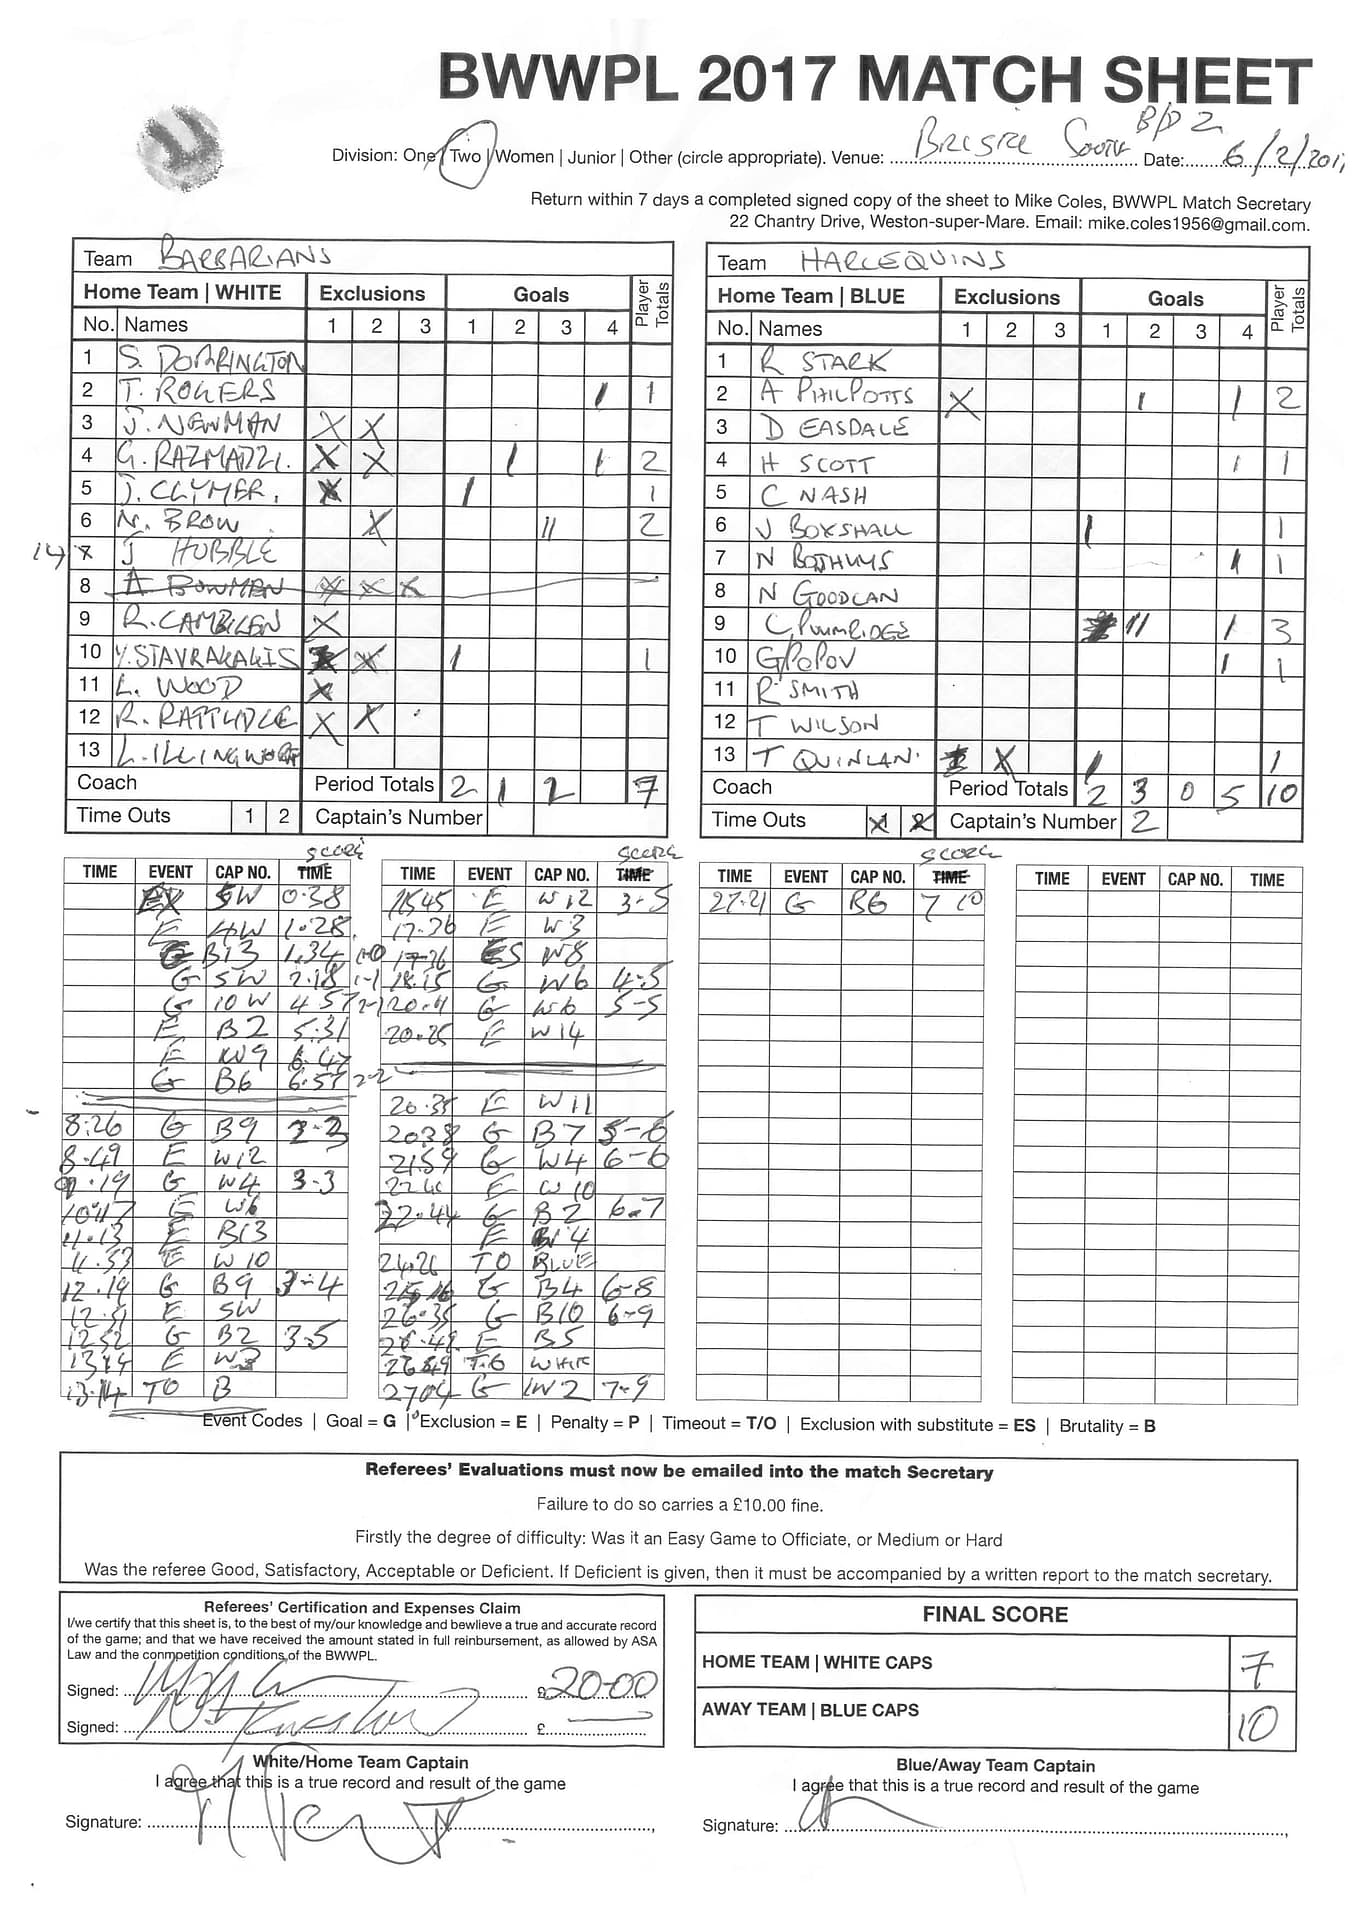 BWWPL 2017 MATCH SHEET
B/D2
Division: One | Two | Women | Junior | Other (circle appropriate). Venue: South Date: 6/2/201
Return within 7 days a completed signed copy of the sheet to Mike Coles, BWWPL Match Secretary
22 Chantry Drive, Weston-super-Mare. Email: mike.coles1956@gmail.com.
Team BARBARIANS
Home Team | WHITE Exclusions Goals Player Totals
No. Names 1 2 3 1 2 3 4
1 S. DORRINGTON
2 T. ROGERS 1 1
3 J. NEWMAN X X
4 G. RAZMADZI. X X 1 1 2
5 J. CLYMER. X 1 1
6 N. BROW X 11 2
14 7 J HUBBLE
8 A BOWMAN X X X
9 R. CAMBILEN X
10 Y. STAVRAKAKIS X X 1 1
11 L. WOOD X
12 R. RATTLIDLE X X
13 L. ILLINGWORTH
Coach Period Totals 2 1 2 7
Time Outs 1 2 Captain's Number
Team HARLEQUINS
Home Team | BLUE Exclusions Goals Player Totals
No. Names 1 2 3 1 2 3 4
1 R STARK
2 A PHILPOTTS X 1 1 2
3 D EASDALE
4 H SCOTT 1 1
5 C NASH
6 J BOXSHALL 1 1
7 N BOTHUYS 1 1
8 N GOODLAN
9 C PLUMRIDGE 11 1 3
10 G POPOV 1 1
11 R SMITH
12 T WILSON
13 T QUINLAN. X X 1 1
Coach Period Totals 2 3 0 5 10
Time Outs 1 2 Captain's Number 2
SCORE
TIME EVENT CAP NO. TIME
EX 5W 0.38
E 4W 1.28
G B13 1.34 1-0
G 5W 2.18 1-1
G 10W 4 57 2-1
E B2 5:31
E W9 6.47
G B6 6.57 2-2
8:26 G B9 2-3
8.49 E W12
9.19 G W4 3-3
10:17 E W6
11.13 E B13
11.53 E W10
12.19 G B9 3-4
12.51 E 5W
12 52 G B2 3-5
1314 E W3
13.14 TO B
SCORE
TIME EVENT CAP NO. TIME
1545 E W12 3-5
17.26 E W3
17-36 ES W8
18.15 G W6 4-5
20.11 G W6 5-5
20.25 E W14
20.35 E W11
2038 G B7 5-6
2159 G W4 6-6
22 E W10
22.44 G B2 6-7
E 4
24.26 TO BLUE
2516 G B4 6-8
26.35 G B10 6-9
26.49 E B5
2649 T.O WHITE
2704 G W2 7-9
SCORE
TIME EVENT CAP NO. TIME
27.21 G B6 7 10
TIME EVENT CAP NO. TIME
Event Codes | Goal = G | Exclusion = E | Penalty = P | Timeout = T/O | Exclusion with substitute = ES | Brutality = B
Referees' Evaluations must now be emailed into the match Secretary
Failure to do so carries a £10.00 fine.
Firstly the degree of difficulty: Was it an Easy Game to Officiate, or Medium or Hard
Was the referee Good, Satisfactory, Acceptable or Deficient. If Deficient is given, then it must be accompanied by a written report to the match secretary.
Referees' Certification and Expenses Claim
I/we certify that this sheet is, to the best of my/our knowledge and bewlieve a true and accurate record
of the game; and that we have received the amount stated in full reinbursement, as allowed by ASA
Law and the conmpetition conditions of the BWWPL.
Signed: £20-00
Signed: £
FINAL SCORE
HOME TEAM | WHITE CAPS 7
AWAY TEAM | BLUE CAPS 10
White/Home Team Captain
I agree that this is a true record and result of the game
Signature:
Blue/Away Team Captain
I agree that this is a true record and result of the game
Signature: